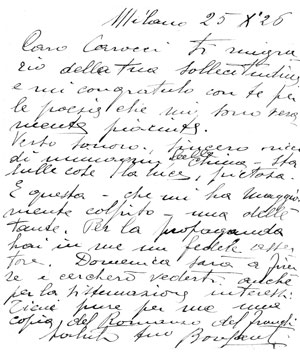 Milano 25 X° 26
Caro Carocci Ti ringra
zio della tua sollecitudine
e mi congratulo con te per
le poesie che mi sono vera
mente piaciute.
Verso sonoro, sincero
di immagini
sulle cose la luce pietosa.
E questa - che mi ha maggior
mente colpito - una delle
tante. Per la propaganda
hai in me un fedele asser
tore. Domenica sarò a Firen
ze e cercherò vederti, anche
per la
pure per me una
copia del Romanzo del